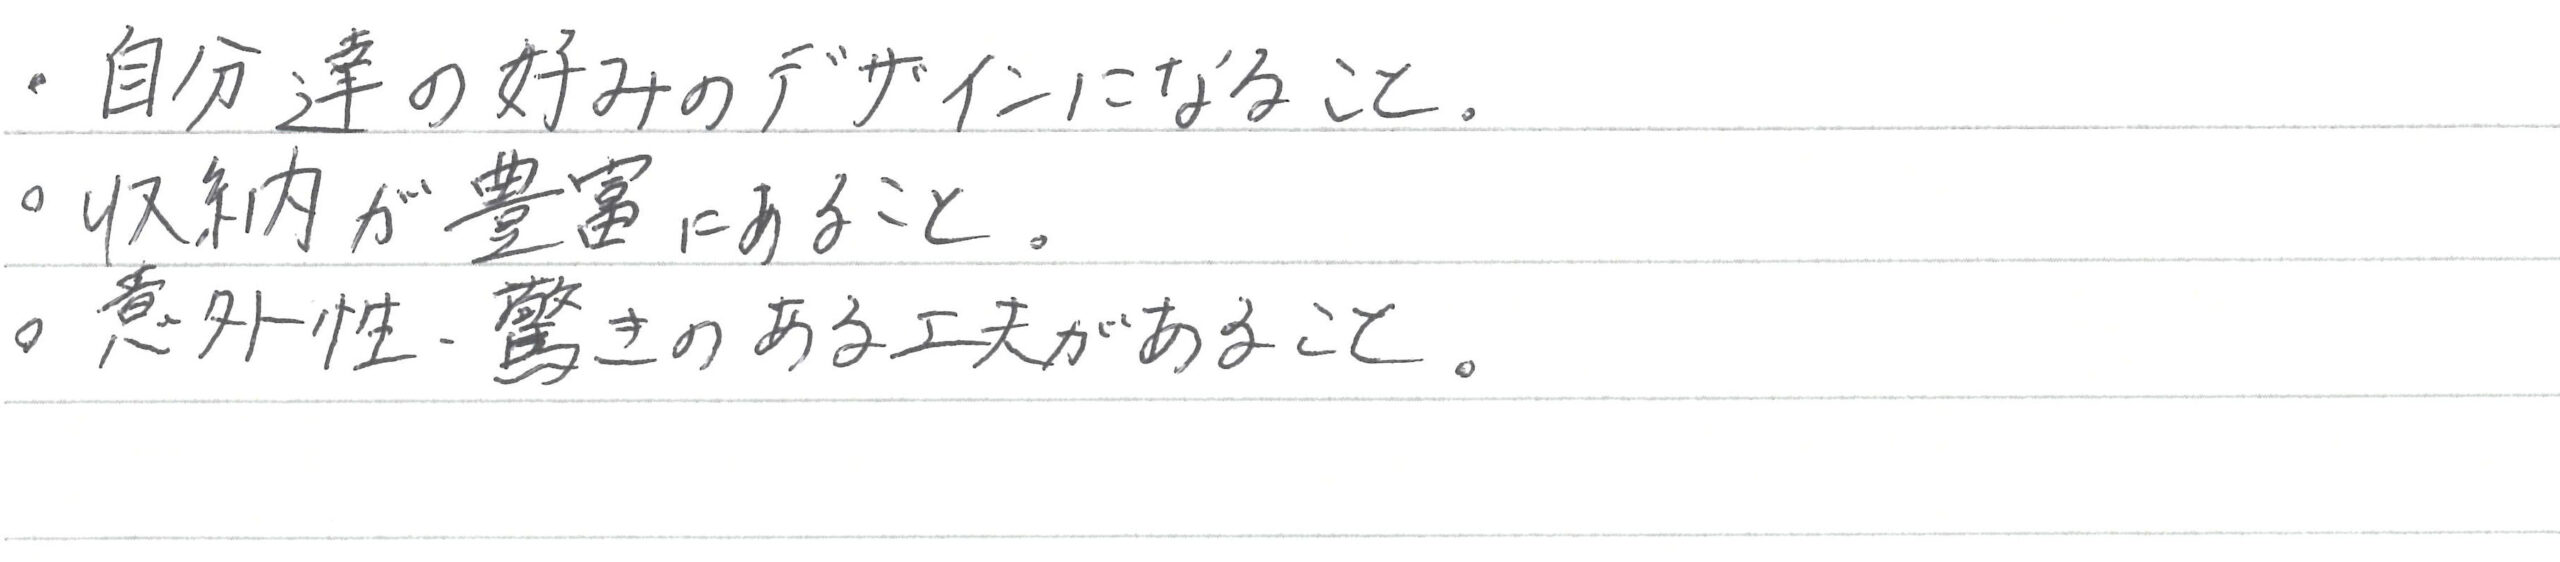 ・自分達の好みのデザインになること。
。収納が豊富にあること。
。意外性、驚きのある工夫があること。